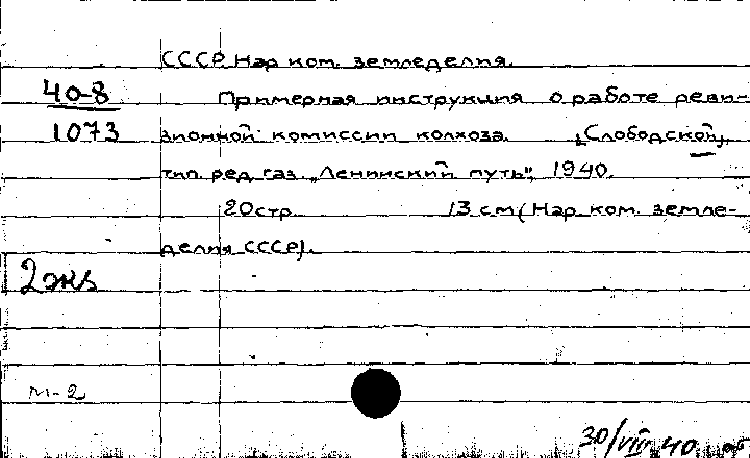 СССР. Нар. ком. земледелия.
40-8
Примерная инструкция о работе реви-
1073
зионной комиссии колхоза. [Слободской],
тип. ред. газ. „Ленинский путь", 1940.
20 стр. 13 см (Нар. ком. земле-
делия СССР).
2 экз
М-2
30/VIII 40